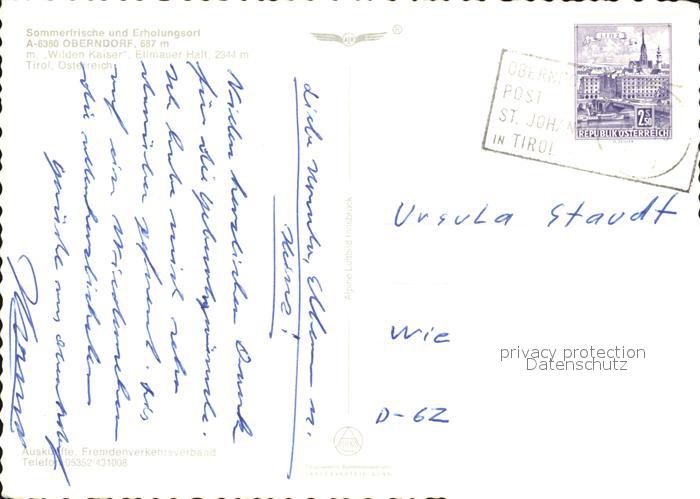 Sommerfrische und Erholungsort
A-6380 OBERNDORF, 687 m
m. „Wilden Kaiser", Ellmauer Halt, 2344 m
Tirol, Österreich
®
LINZ
2.50
REPUBLIK ÖSTERREICH
OBERND
POST
ST. JOHAN
IN TIROL
Liebe u.
Heinz!
Vielen herzlichen Dank
für die Geburtstagswünsche.
Ich habe mich sehr
darüber gefreut. Bis
auf ein Wiedersehen
die allerherzlichsten
Grüße aus Oberndorf
Alpine Luftbild Innsbruck
Ursula Staudt
Wie
D-62
privacy protection
Datenschutz
Auskünfte, Fremdenverkehrsverband
Telefon 05352/431008